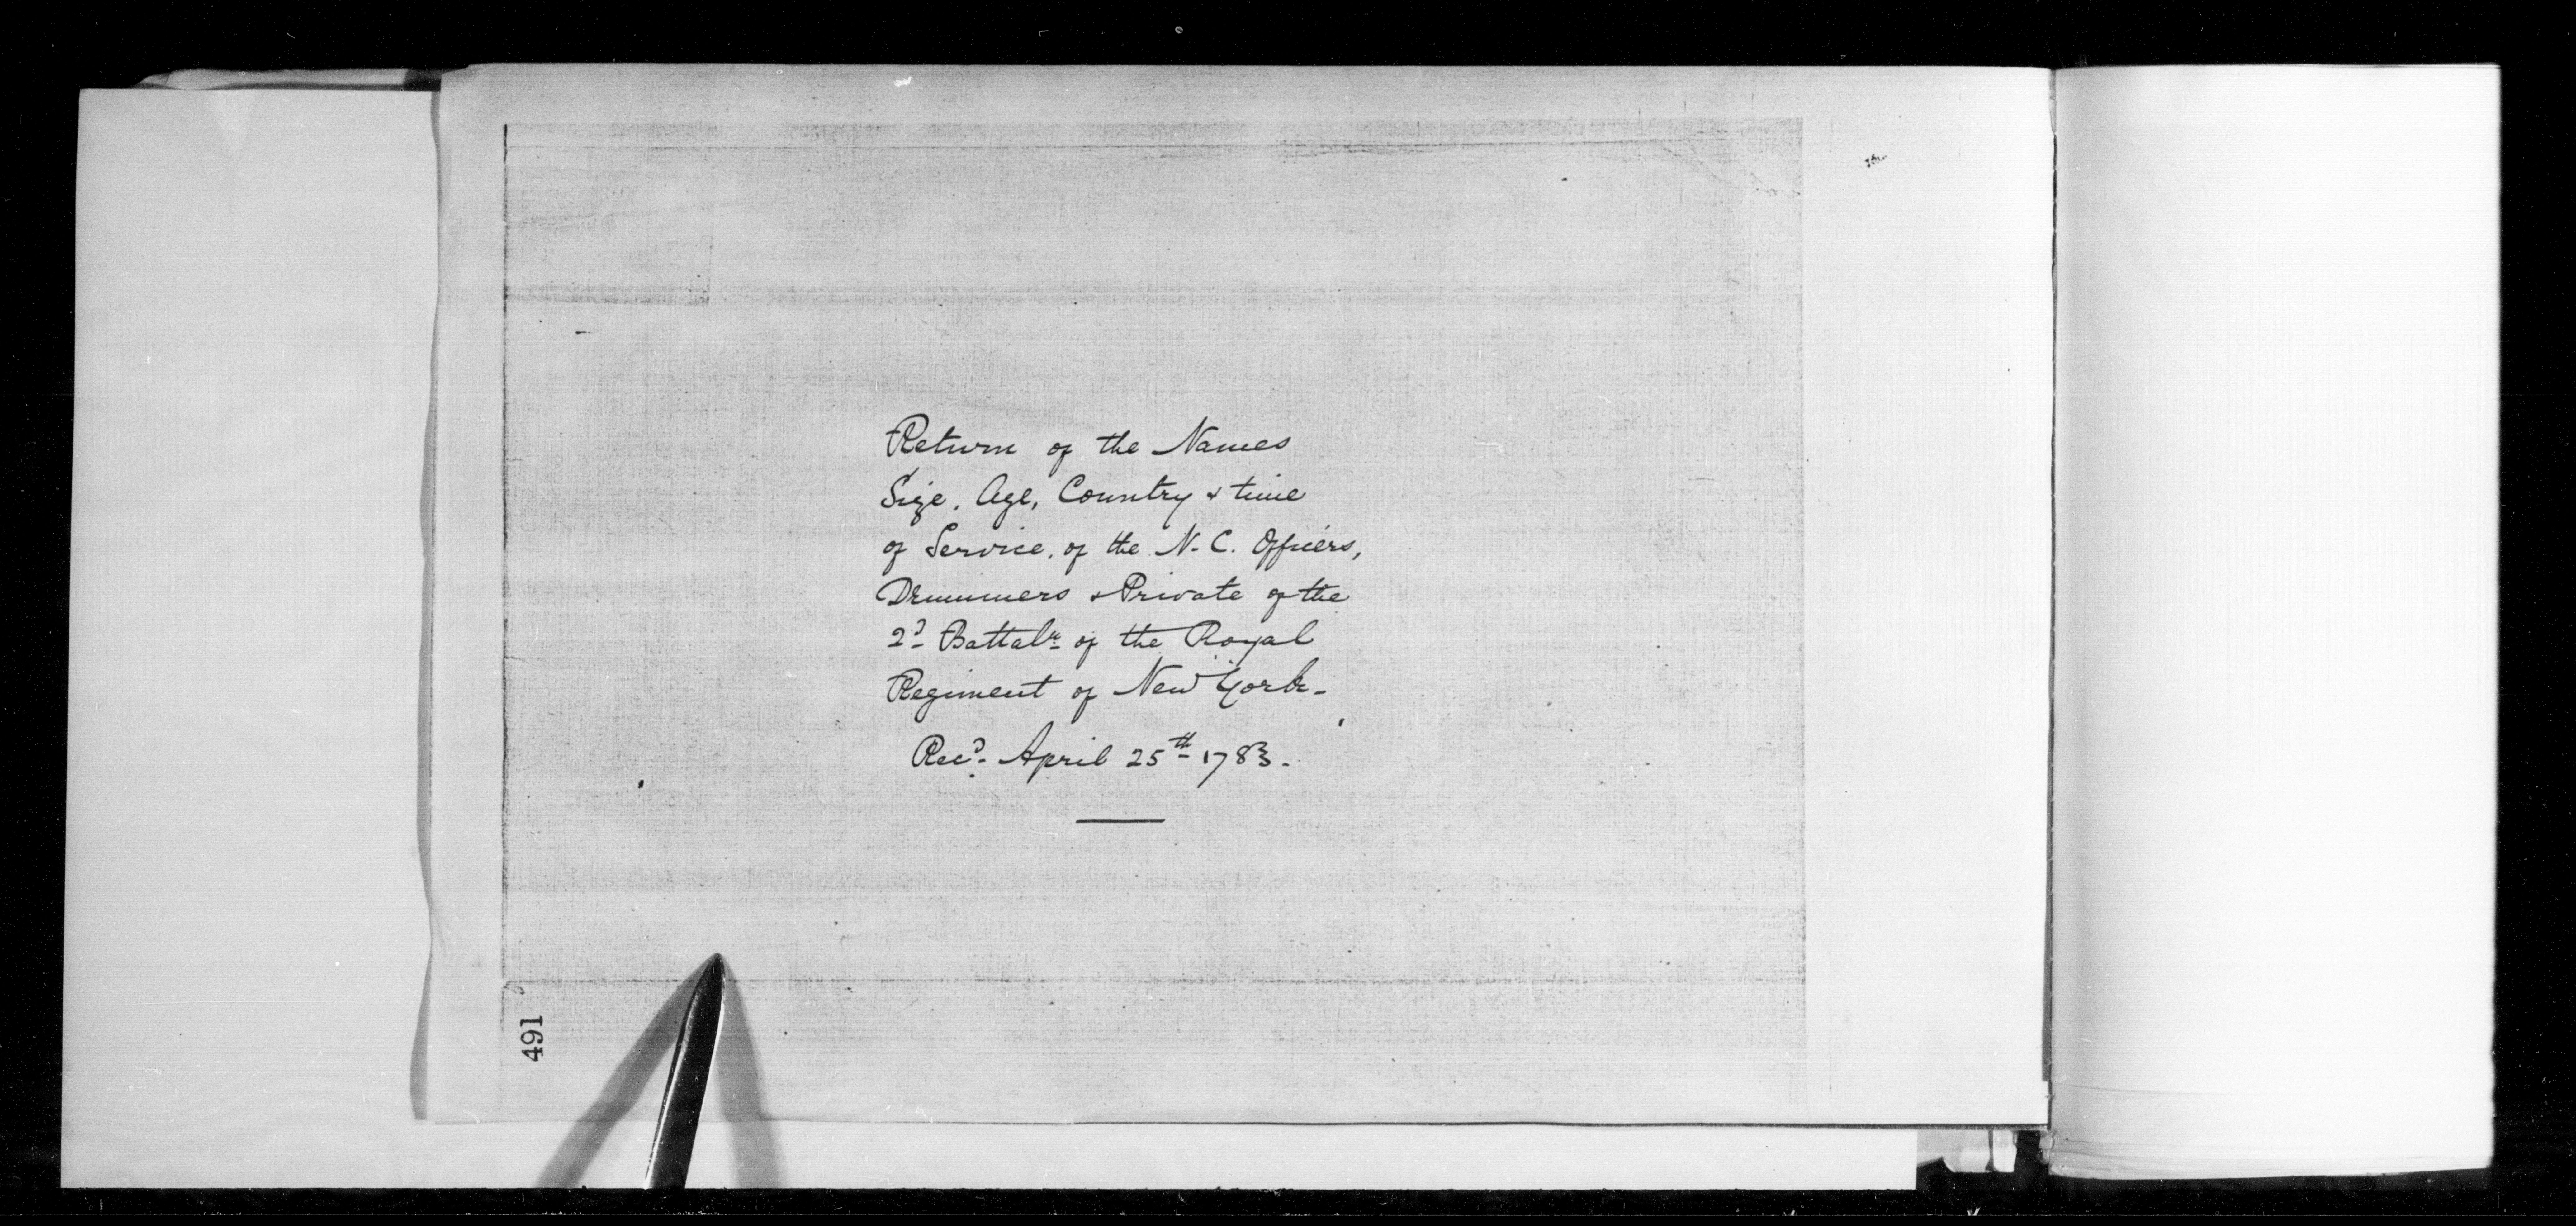 Return of the Names
Size, Age, Country & time
of Service, of the N. C. Officers,
Drummers & Private of the
2d Battaln of the Royal
Regiment of New York -
Recd April 25th 1783.
491